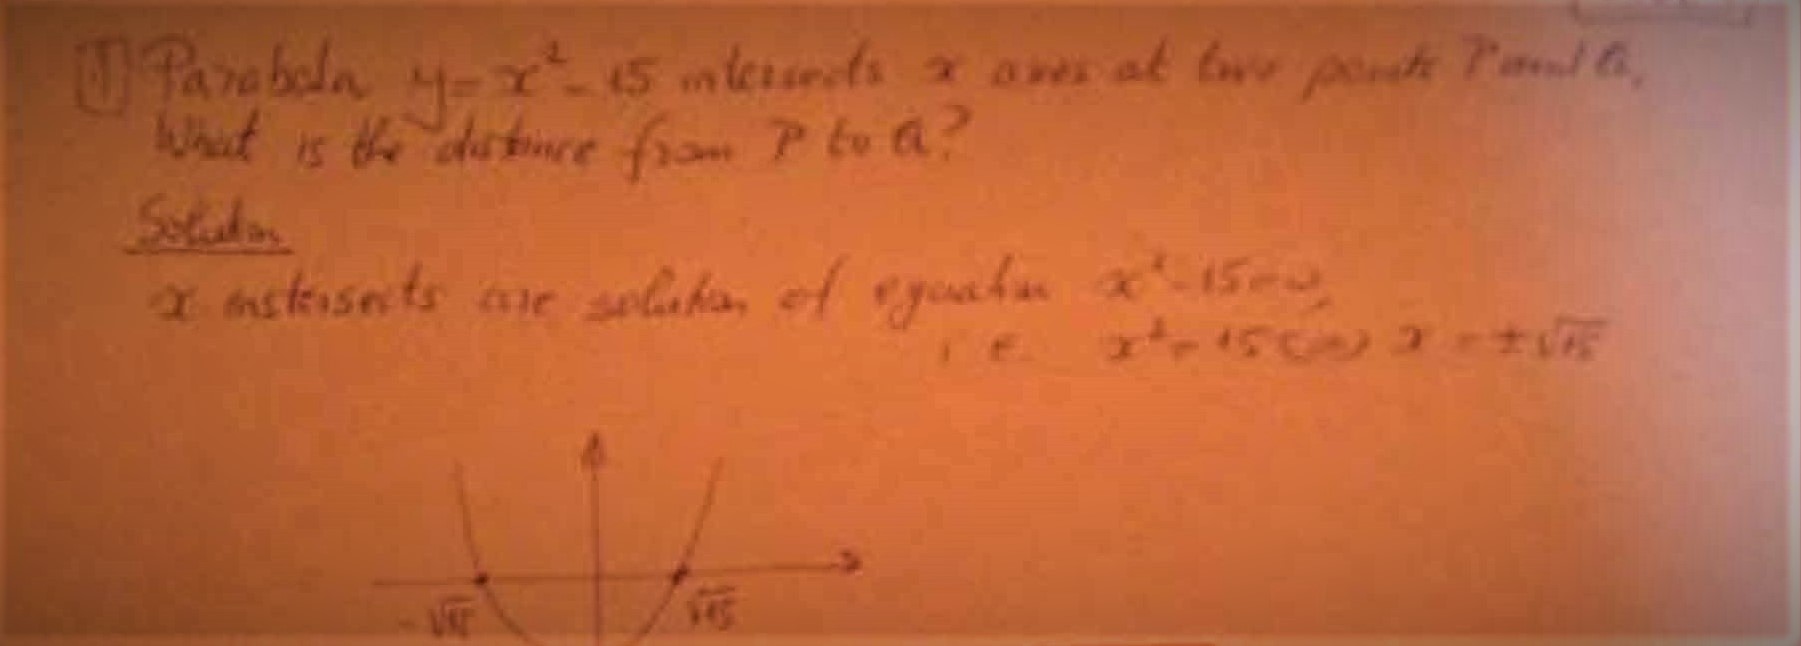 [1] Parabola y = x² - 15 intersects x axes at two points P and Q.
What is the distance from P to Q?
Solution
x instersects are solution of equation x² - 15 = 0,
i.e. x² = 15 <=> x = ±√15
-√15 √15